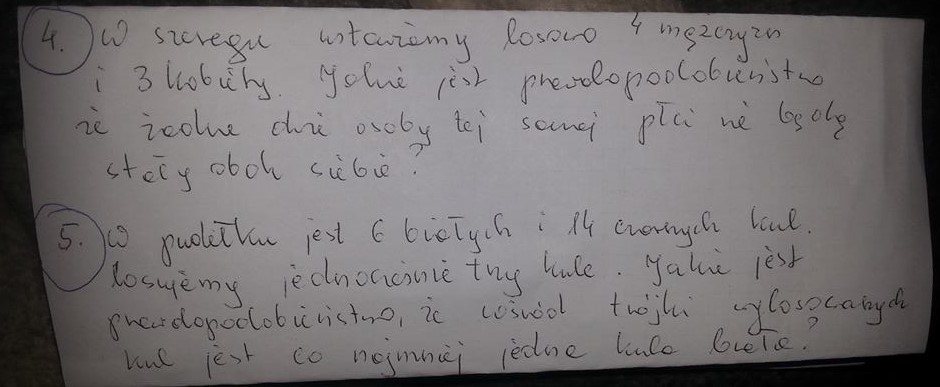 4. W szeregu ustawiamy losowo 4 mężczyzn
i 3 kobiety. Jakie jest prawdopodobieństwo
że żadne dwie osoby tej samej płci nie będą
stały obok siebie?
5. W pudełku jest 6 białych i 14 czarnych kul.
losujemy jednocześnie trzy kule. Jakie jest
prawdopodobieństwo, że wśród trójki wylosowanych
kul jest co najmniej jedna kula biała?